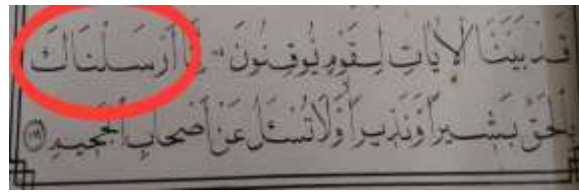 قَدْ بَيَّنَّا الْاٰيَاتِ لِقَوْمٍ يُوقِنُونَ ﴿١١٨﴾ اِنَّٓا اَرْسَلْنَاكَ
بِالْحَقِّ بَشٖيرًا وَنَذٖيرًا وَلَا تُسْـَٔلُ عَنْ اَصْحَابِ الْجَحٖيمِ ﴿١١٩﴾